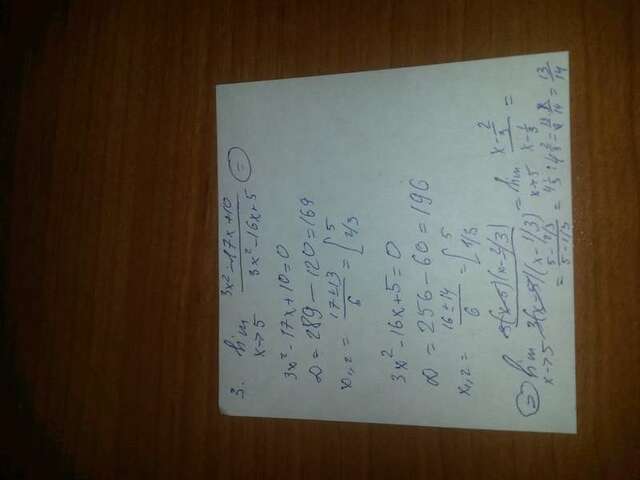 3. lim x→5 (3x²-17x+10)/(3x²-16x+5) =
3x²-17x+10=0
D=289-120=169
x₁,₂ = (17±13)/6 = [5 2/3
3x²-16x+5=0
D=256-60=196
x₁,₂ = (16±14)/6 = [5 1/3
= lim x→5 3(x-5)(x-2/3)/3(x-5)(x-1/3) = lim x→5 (x-2/3)/(x-1/3) =
= (5-2/3)/(5-1/3) = = 13/14